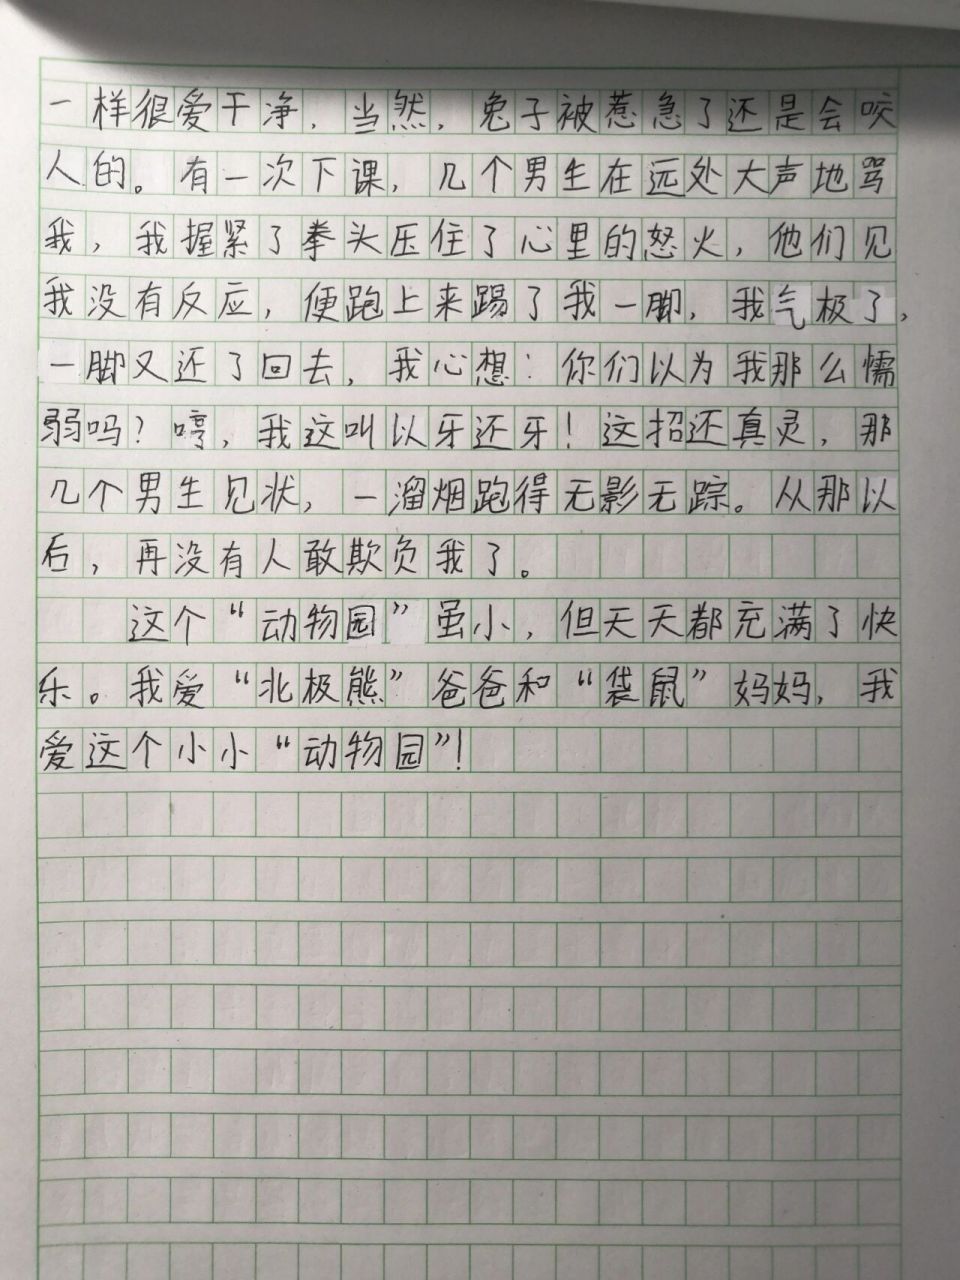 一样很爱干净，当然，兔子被惹急了还是会咬
人的。有一次下课，几个男生在远处大声地骂
我，我握紧了拳头压住了心里的怒火，他们见
我没有反应，便跑上来踢了我一脚，我气极了，
一脚又还了回去，我心想：你们以为我那么懦
弱吗？哼，我这叫以牙还牙！这招还真灵，那
几个男生见状，一溜烟跑得无影无踪。从那以
后，再没有人敢欺负我了。
这个“动物园”虽小，但天天都充满了快
乐。我爱“北极熊”爸爸和“袋鼠”妈妈，我
爱这个小小“动物园”！